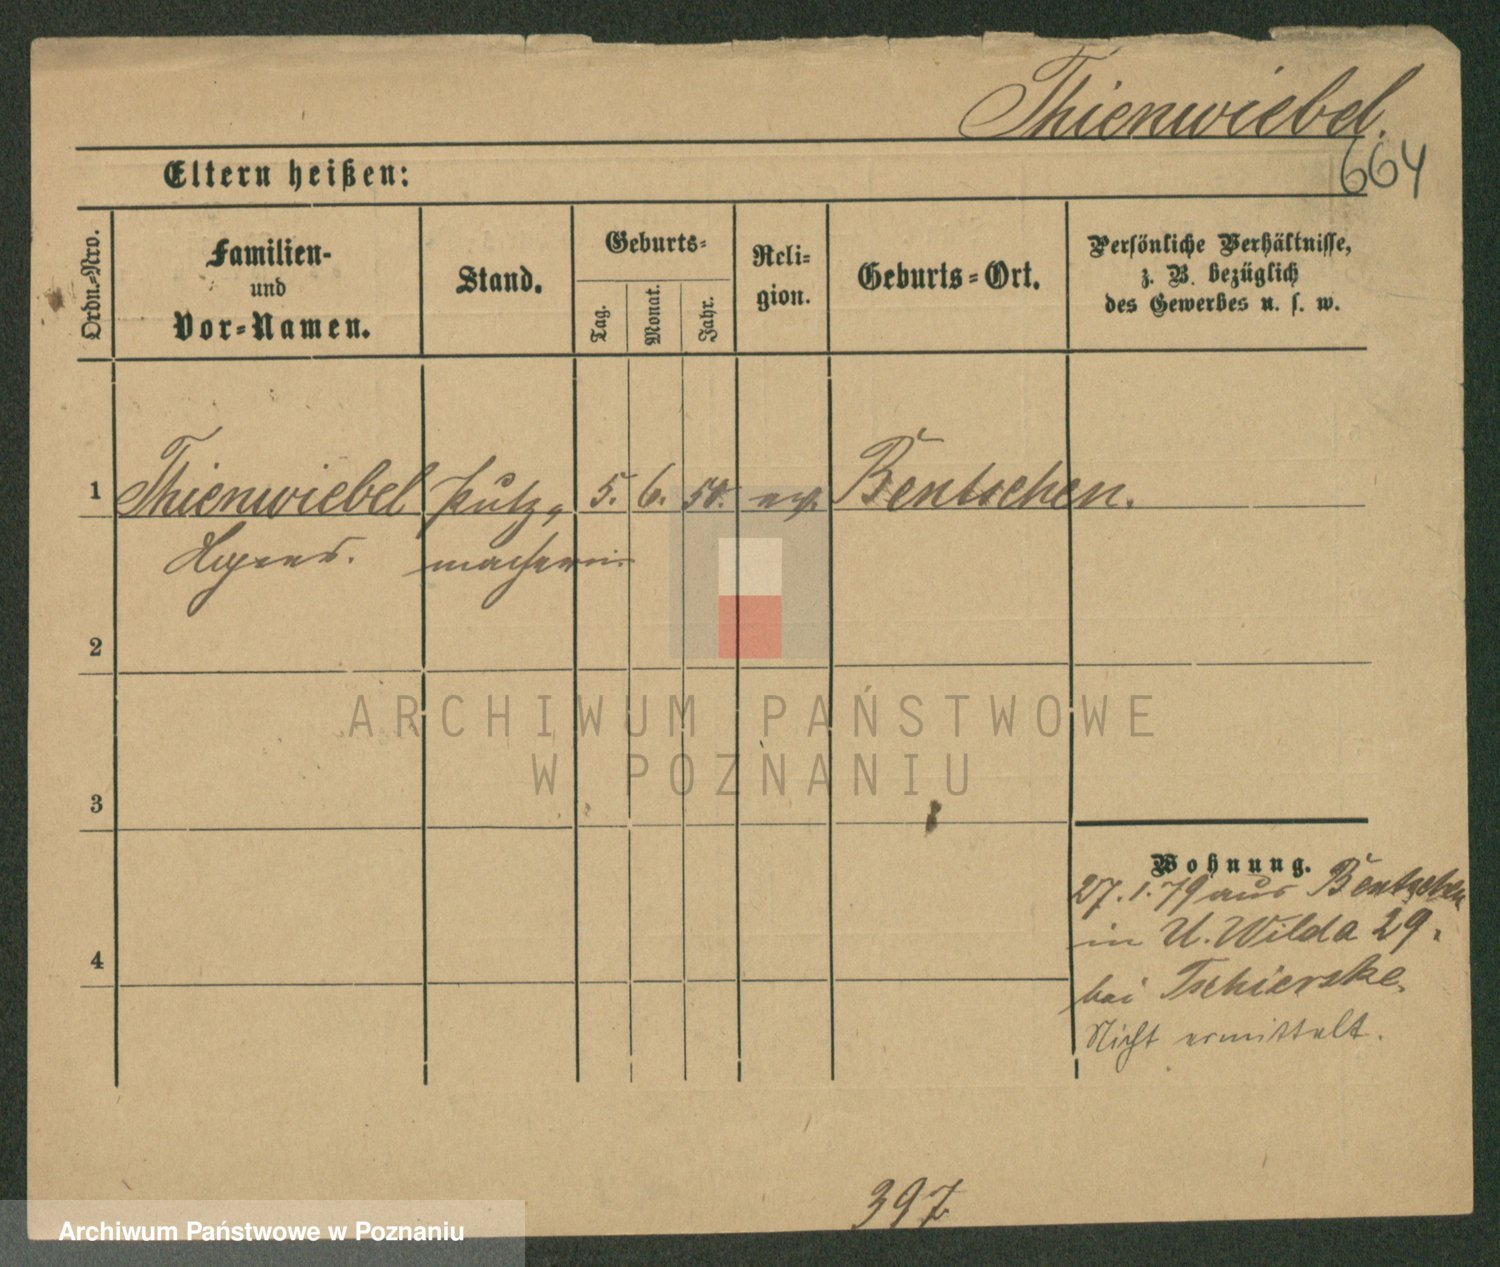 Thienwiebel.
664
Eltern heißen:
Ordn.-Nro.
Familien-
und
Vor-Namen.
Stand.
Geburts-
Tag.
Monat.
Jahr.
Reli-
gion.
Geburts-Ort.
Persönliche Verhältnisse,
z. B. bezüglich
des Gewerbes u. s. w.
1
Thienwiebel Putz- 5. 6. 50. Bentschen.
macherin
2
3
4
Wohnung.
27.1.79 aus Bentschen
in U. Wilda 29.
bei Tschierske.
Nicht ermittelt.
397
ARCHIWUM PAŃSTWOWE
W POZNANIU
Archiwum Państwowe w Poznaniu